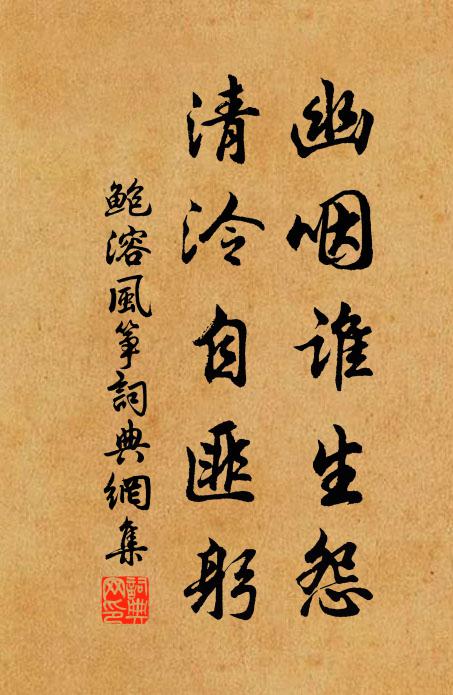 幽咽誰生怨
清泠自匪躬
鮑溶風箏詞典網集
詞典網印